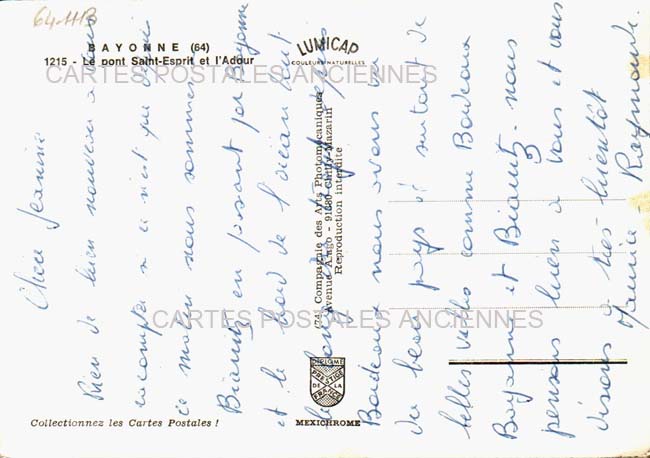 64-1113
BAYONNE (64)
1215 - Le pont Saint-Esprit et l'Adour
LUMICAP
COULEURS NATURELLES
CARTES POSTALES ANCIENNES
Chère Jeanine
Rien de bien nouveau à vous
raconter si ce n'est que depuis
ce matin nous sommes à
Biarritz en passant par Bayonne
et le bord de l'océan tout
le long de la côte depuis
Bordeaux nous avons vu
du beau pays et surtout de
belles villes comme Bordeaux
Bayonne et Biarritz. nous
pensons bien à vous et vous
disons à très bientôt
Maurice - Raymonde.
(74) Compagnie des Arts Photomécaniques
Avenue Arago - 91380 Chilly-Mazarin
Reproduction interdite
CARTES POSTALES ANCIENNES
DIPLOME
PRESTIGE
DE LA
FRANCE
MEXICHROME
Collectionnez les Cartes Postales !